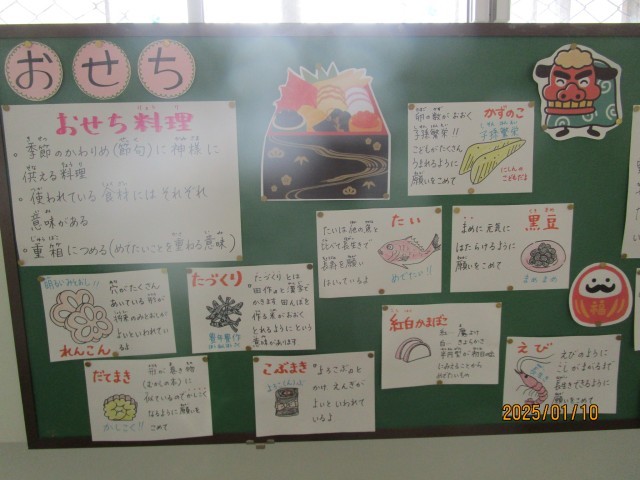 おせち
おせち料理
・季節のかわりめ(節句)に神様に
供える料理
・使われている食材にはそれぞれ
意味がある
・重箱につめる(めでたいことを重ねる意味)
かずのこ
卵の数がおおく
子孫繁栄!!
子孫繁栄
こどもがたくさん
うまれるように
願いをこめて
にしんの
こどもだよ
たい
たいは他の魚と
比べて長生きで
長寿を願い
はいっているよ
めでたい!!
黒豆
まめに元気に
はたらけるように
願いをこめて
まめまめ
福
穴がたくさん
あいている形が
将来のみとおしが
よいといわれてい
るよ
れんこん
たづくり
"たづくり"とは
"田作り"と漢字で
かきます 田んぼを
作る魚がおおく
とれるようにという
意味があります
豊年豊作
紅白かまぼこ
紅…魔よけ
白…きよらかさ
えび
えびのように
こしがまがるまで
長生きできるように
願いをこめて
だてまき
形が巻き物
(むかしの本)に
似ているのでかしこく
なるように願いを
こめて
かしこく!!
こぶまき
"よろこぶ"と
かけ えんぎが
よいといわれて
いるよ
2025/01/10